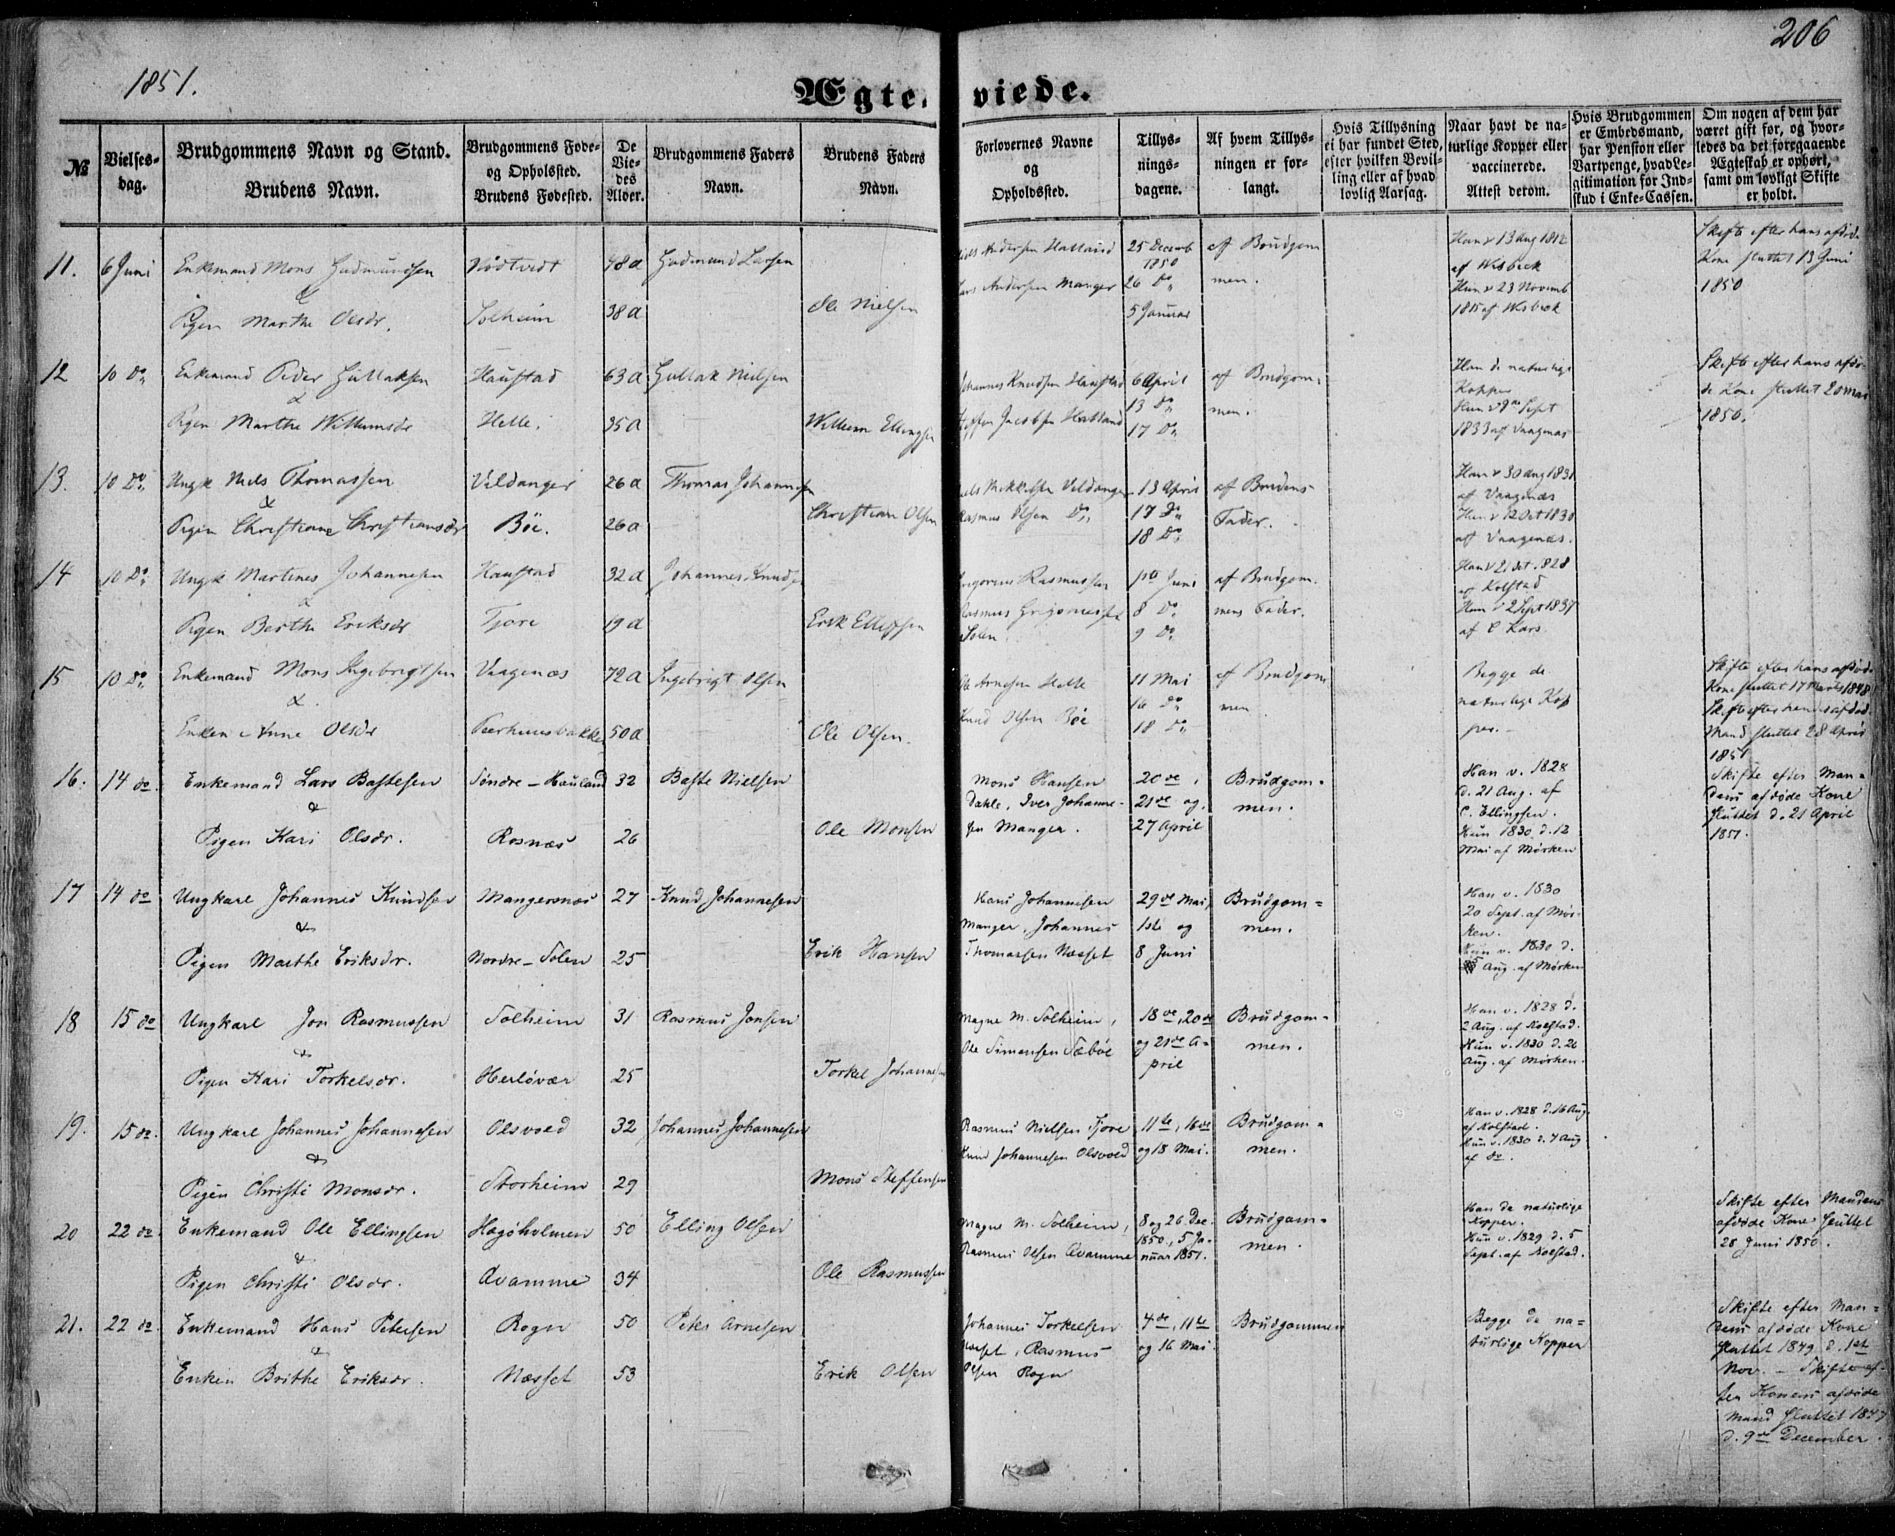 206
1851.
Ægteviede.
No
Vielsesdag.
Brudgommens Navn og Stand.
Brudens Navn.
Brudgommens Føde- og Opholdsted.
Brudens Fødested.
De Viedes Alder.
Brudgommens Faders Navn.
Brudens Faders Navn.
Forlovernes Navne og Opholdssted.
Tillysningsdagene.
Af hvem Tillysningen er forlangt.
Hvis Tillysning ei har fundet Sted, efter hvilken Bevilling eller af hvad lovlig Aarsag.
Naar havt de naturlige Kopper eller vaccinerede. Attest derom.
Hvis Brudgommen er Embedsmand, har Pension eller Vartpenge, hvad Legitimation for Indskud i Enke-Cassen.
Om nogen af dem har været gift før, og hvorledes da det foregaaende Ægteskab er ophørt, samt om lovligt Skifte er holdt.
11. 6 Juni Enkemand Mons Gudmundsen Nødtvedt 48 a Gudmund Larsen Andersen Hatland 25 Decemb 1850 af Brudgom Han v 13 Aug 1812 Skifte efter hans afdøde
& Andersen Manger 26 Do men. af Wesbeck Kone sluttet 13 Juni
Pigen Marthe Olsdr. Solheim 38 a Ole Nielsen 5 Januar Hun v 23 Novemb 1850
1815 af Wesbeck
12 10 Do Enkemand Peder Gullaksen Haustad 63 a Gullak Nielsen Johannes Knudsen Haustad 6 April af Brudgom- Han de naturlige Skifte efter hans afdø-
& 13 Do men. Kopper de Kone sluttet 20 Mai
Pigen Marthe Willumsdr Helle. 35 a Willum Ellingsen Jacobsen Hatland 17 Do Hun v 9de Sept 1850.
1833 af Vaagenæs
13. 10 Do Ungk Niels Thomassen Veldanger 26 a Thomas Johannesen Niels Mikkelsen Veldanger 13 April af Brudens Han v 30 Aug 1831
& 17 Do Fader. af Vaagenæs
Pigen Christiane Christiansdr Bøe. 26 a Christian Olsen Rasmus Olsen Do 18 Do Hun v 12 Oct 1830
af Vaagenæs.
14 10 Do Ungk Martines Johannesen Haustad 32 a Johannes Knuds Gregorius Rasmussen 1ste Juni af Brudgom- Han v 21 Oct. 1828
& Rasmus 8 Do mens Fader. af Kolstad
Pigen Berthe Eriksdr Fjore 19 a Erik Ellefsen Solen 9 Do Hun v 2 Sept 1837
af C Lars.
15 10 Do Enkemand Mons Ingebrigtsen Vaagenæs 72 a Ingebrigt Olsen Ole Arnesen Helle 11 Mai af Brudgom Begge de Skifte efter hans afdøde
&. Knud Olsen Bøe 16 Do men naturlige Kop Kone sluttet 17 Marts 1848
Enken Anne Olsdr 50 a Ole Olsen. 18 Do per. Skifte efter hendes afdød
Mand sluttet 28 April
1851
16. 14 do. Enkemand Lars Bastesen Søndre-Hauland 32 Baste Nielsen Mons Hansen 20de, Brudgom- Han v. 1828 Skifte efter Man-
& Dahle, Iver Johanne- 21de og men. d. 21 Aug. af dens afdøde Kone
Pigen Kari Olsdr. Rosnæs 26 Ole Monsen sen Manger. 27 April C. Ellingsen. sluttet d. 21 April
Hun 1830 d. 12 1851.
Mai af Mørken
17 14 do Ungkarl Johannes Knudsen Mangersnæs 27 Knud Johannesen Hans Johannesen 29de Mai, Brudgom- Han v. 1830
& Manger, Johannes 1ste og men. 20 Sept. af Mør-
Pigen Marthe Eriksdr. Nordre-Solen 25 Erik Hansen Thomassen Nesset 8 Juni ken.
Hun v. 1830 d.
Aug. af Mørken
18 15 do Ungkarl Jon Rasmussen Solheim 31 Rasmus Jonsen Magne M. Solheim, 18de, 20de Brudgom- Han v. 1828 d.
& Ole Simensen Sæbøe og 21de A- men. 2 Aug. af Kolstad.
Pigen Kari Torkelsdr. Herløvær 25 Torkel Johannesen pril Hun v. 1830 d. 26
Aug. af Mørken.
19. 15 do. Ungkarl Johannes Johannesen Olsvoed 32 Johannes Johannesen Rasmus Nielsen Fjore 11te, 16de Brudgom- Han v. 1828 d. 16 Aug.
& Knud Johannesen Olsvoed og 18 Mai. men. af Kolstad.
Pigen Christi Monsdr. Storheim 29 Mons Steffensen Hun v. 1830 d. 7 Aug
af do.
20 22 do. Enkemand Ole Ellingsen Høgøholmen 50 Elling Olsen Magne M. Solheim, 8 og 26 Dec. Brudgom- Han de naturlige Skifte efter Mandens
& Rasmus Olsen Qvamme 1850, 5 Ja- men. Kopper. afdøde Kone sluttet
Pigen Christi Olsdr. Qvamme 34 Ole Rasmussen nuar 1851. Hun v. 1829 d. 5 28 Juni 1850.
Sept. af Kolstad.
21. 22 do Enkemand Hans Petersen Rogn 50 Peter Arnesen Johannes Torkelsen 4de, 11te Brudgommen Begge de na- Skifte efter Man-
& Nesset, Rasmus og 16 Mai turlige Kopper dens afdøde Kone
Enken Brithe Eriksdr. Næsset 53 Erik Olsen Olsen Rogn sluttet 1849 d. 1ste
Nov. - Skifte ef-
ter Konens afdøde
Mand sluttet
d. 9de December.